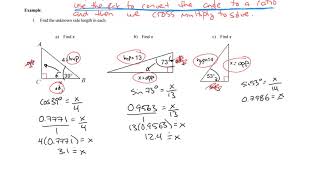 use the fcn to convert the angle to a ratio
and then we cross multiply to solve.
Example:
1. Find the unknown side length in each.
a) Find x
b) Find x
c) Find x
A
4=hyp
39°
C
B
x
adj
cos39° = x/4
0.7771/1 = x/4
4(0.7771) = x
3.1 = x
hyp=13
73°
x=opp
sin 73° = x/13
0.9563/1 = x/13
13(0.9563) = x
12.4 = x
53°
x=opp
sin53° = x/14
0.7986 = x